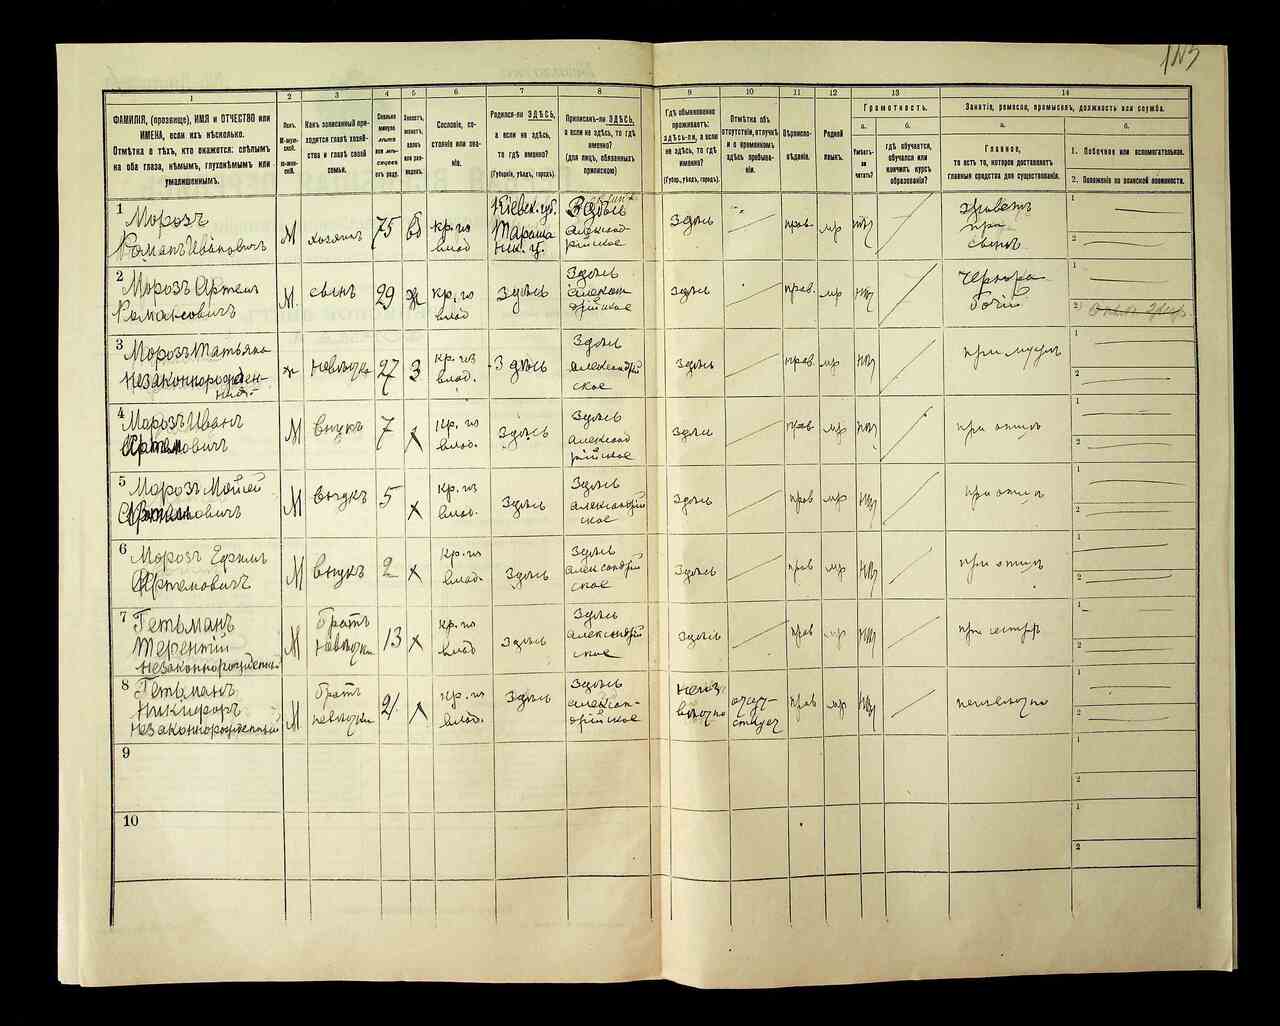 1
2
3
4
5
6
7
8
ФАМИЛІЯ, (прозвище), ИМЯ и ОТЧЕСТВО или
ИМЕНА, если ихъ нѣсколько.
Отмѣтка о тѣхъ, кто окажется: слѣпымъ
на оба глаза, нѣмымъ, глухонѣмымъ или
умалишеннымъ.
Полъ.
М-муж-
ской.
Ж-жен-
скій.
Какъ записанный при-
ходится главѣ хозяй-
ства и главѣ своей
семьи.
Сколько
минуло
лѣтъ
или мѣ-
сяцевъ
отъ роду.
Холостъ,
женатъ,
вдовъ
или раз-
веденъ.
Сословіе, со-
стояніе или зва-
ніе.
Родился-ли ЗДѢСЬ,
а если не здѣсь,
то гдѣ именно?
(Губернія, уѣздъ, городъ).
Приписанъ-ли ЗДѢСЬ,
а если не здѣсь, то гдѣ
именно?
(для лицъ, обязанныхъ
припискою)
9
10
11
12
13
14
Гдѣ обыкновенно
проживаетъ:
здѣсь-ли, а если
не здѣсь, то гдѣ
именно?
(Губер., уѣздъ, городъ).
Отмѣтка объ
отсутствіи, отлучкѣ
и о временномъ
здѣсь пребыва-
ніи.
Вѣроиспо-
вѣданіе.
Родной
языкъ.
Грамотность.
а.
б.
Умѣетъ-
ли
читать?
гдѣ обучается,
обучался или
кончилъ курсъ
образованія?
Занятіе, ремесло, промыселъ, должность или служба.
а.
б.
Главное,
то есть то, которое доставляетъ
главныя средства для существованія.
1. Побочное или вспомогательное.
2. Положеніе по воинской повинности.
1
Морозъ
Романъ Ивановичъ
М
хозяинъ
75
кр. из
влад
Кіевск. губ.
Здѣсь
Александ
рійское
Здѣсь
прав.
мр
живетъ
при
сынѣ
1
2
2
Морозъ Артем
Романовичъ
М.
сынъ
29
ж
кр. из
влад
Здѣсь
Здѣсь
рійское
здѣсь
прав.
мр
Черно ра
бочій
1
2
3
Морозъ Татьяна
Незаконнорожден-
ная
ж
невѣстка
27
З
кр. из
влад.
Здѣсь
Здѣсь
Александрій
ское
Здѣсь
прав.
мр
при мужѣ
1
2
4
Морозъ Иванъ
Артемовичъ
М
внукъ
7
х
кр. из
влад.
Здѣсь
Здѣсь
Александ
рійское
Здѣсь
прав
мр
при отцѣ
1
2
5
Морозъ Мойсей
М
внукъ
5
х
кр. из
влад.
Здѣсь
Здѣсь
Александрій
ское
Здѣсь
прав
мр
при отцѣ
1
2
6
Морозъ Ефрем
Артемовичъ
М
внукъ
2
х
кр. из
влад.
Здѣсь
Здѣсь
Александрій
ское
Здѣсь
прав
мр
при отцѣ
1
2
7
Гетьманъ
Терентій
незаконнорожденный
М
братъ
невѣстки
13
х
кр. из
влад
Здѣсь
Здѣсь
Александрій
ское
Здѣсь
прав
мр
при сестрѣ
1
2
8
Гетьманъ
Никифоръ
незаконнорожденный
М
братъ
невѣстки
21
х
кр. из
влад.
Здѣсь
Здѣсь
Алексан-
дрійское
неиз
вѣстно
отсут-
ствует
прав
мр
неизвѣстно
1
2
9
1
2
10
1
2